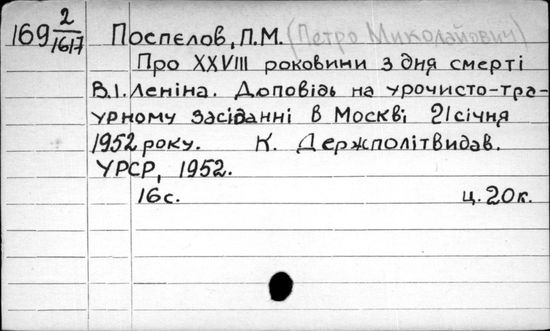 169 2/1617 Поспєлов, П.М. (Петро Миколайович)
Про XXVIII роковини з дня смерті
В.І. Леніна. Доповідь на урочисто-тра-
урному засіданні в Москві 21 січня
1952 року. К. Держполітвидав.
УРСР, 1952.
16 с. ц. 20 к.